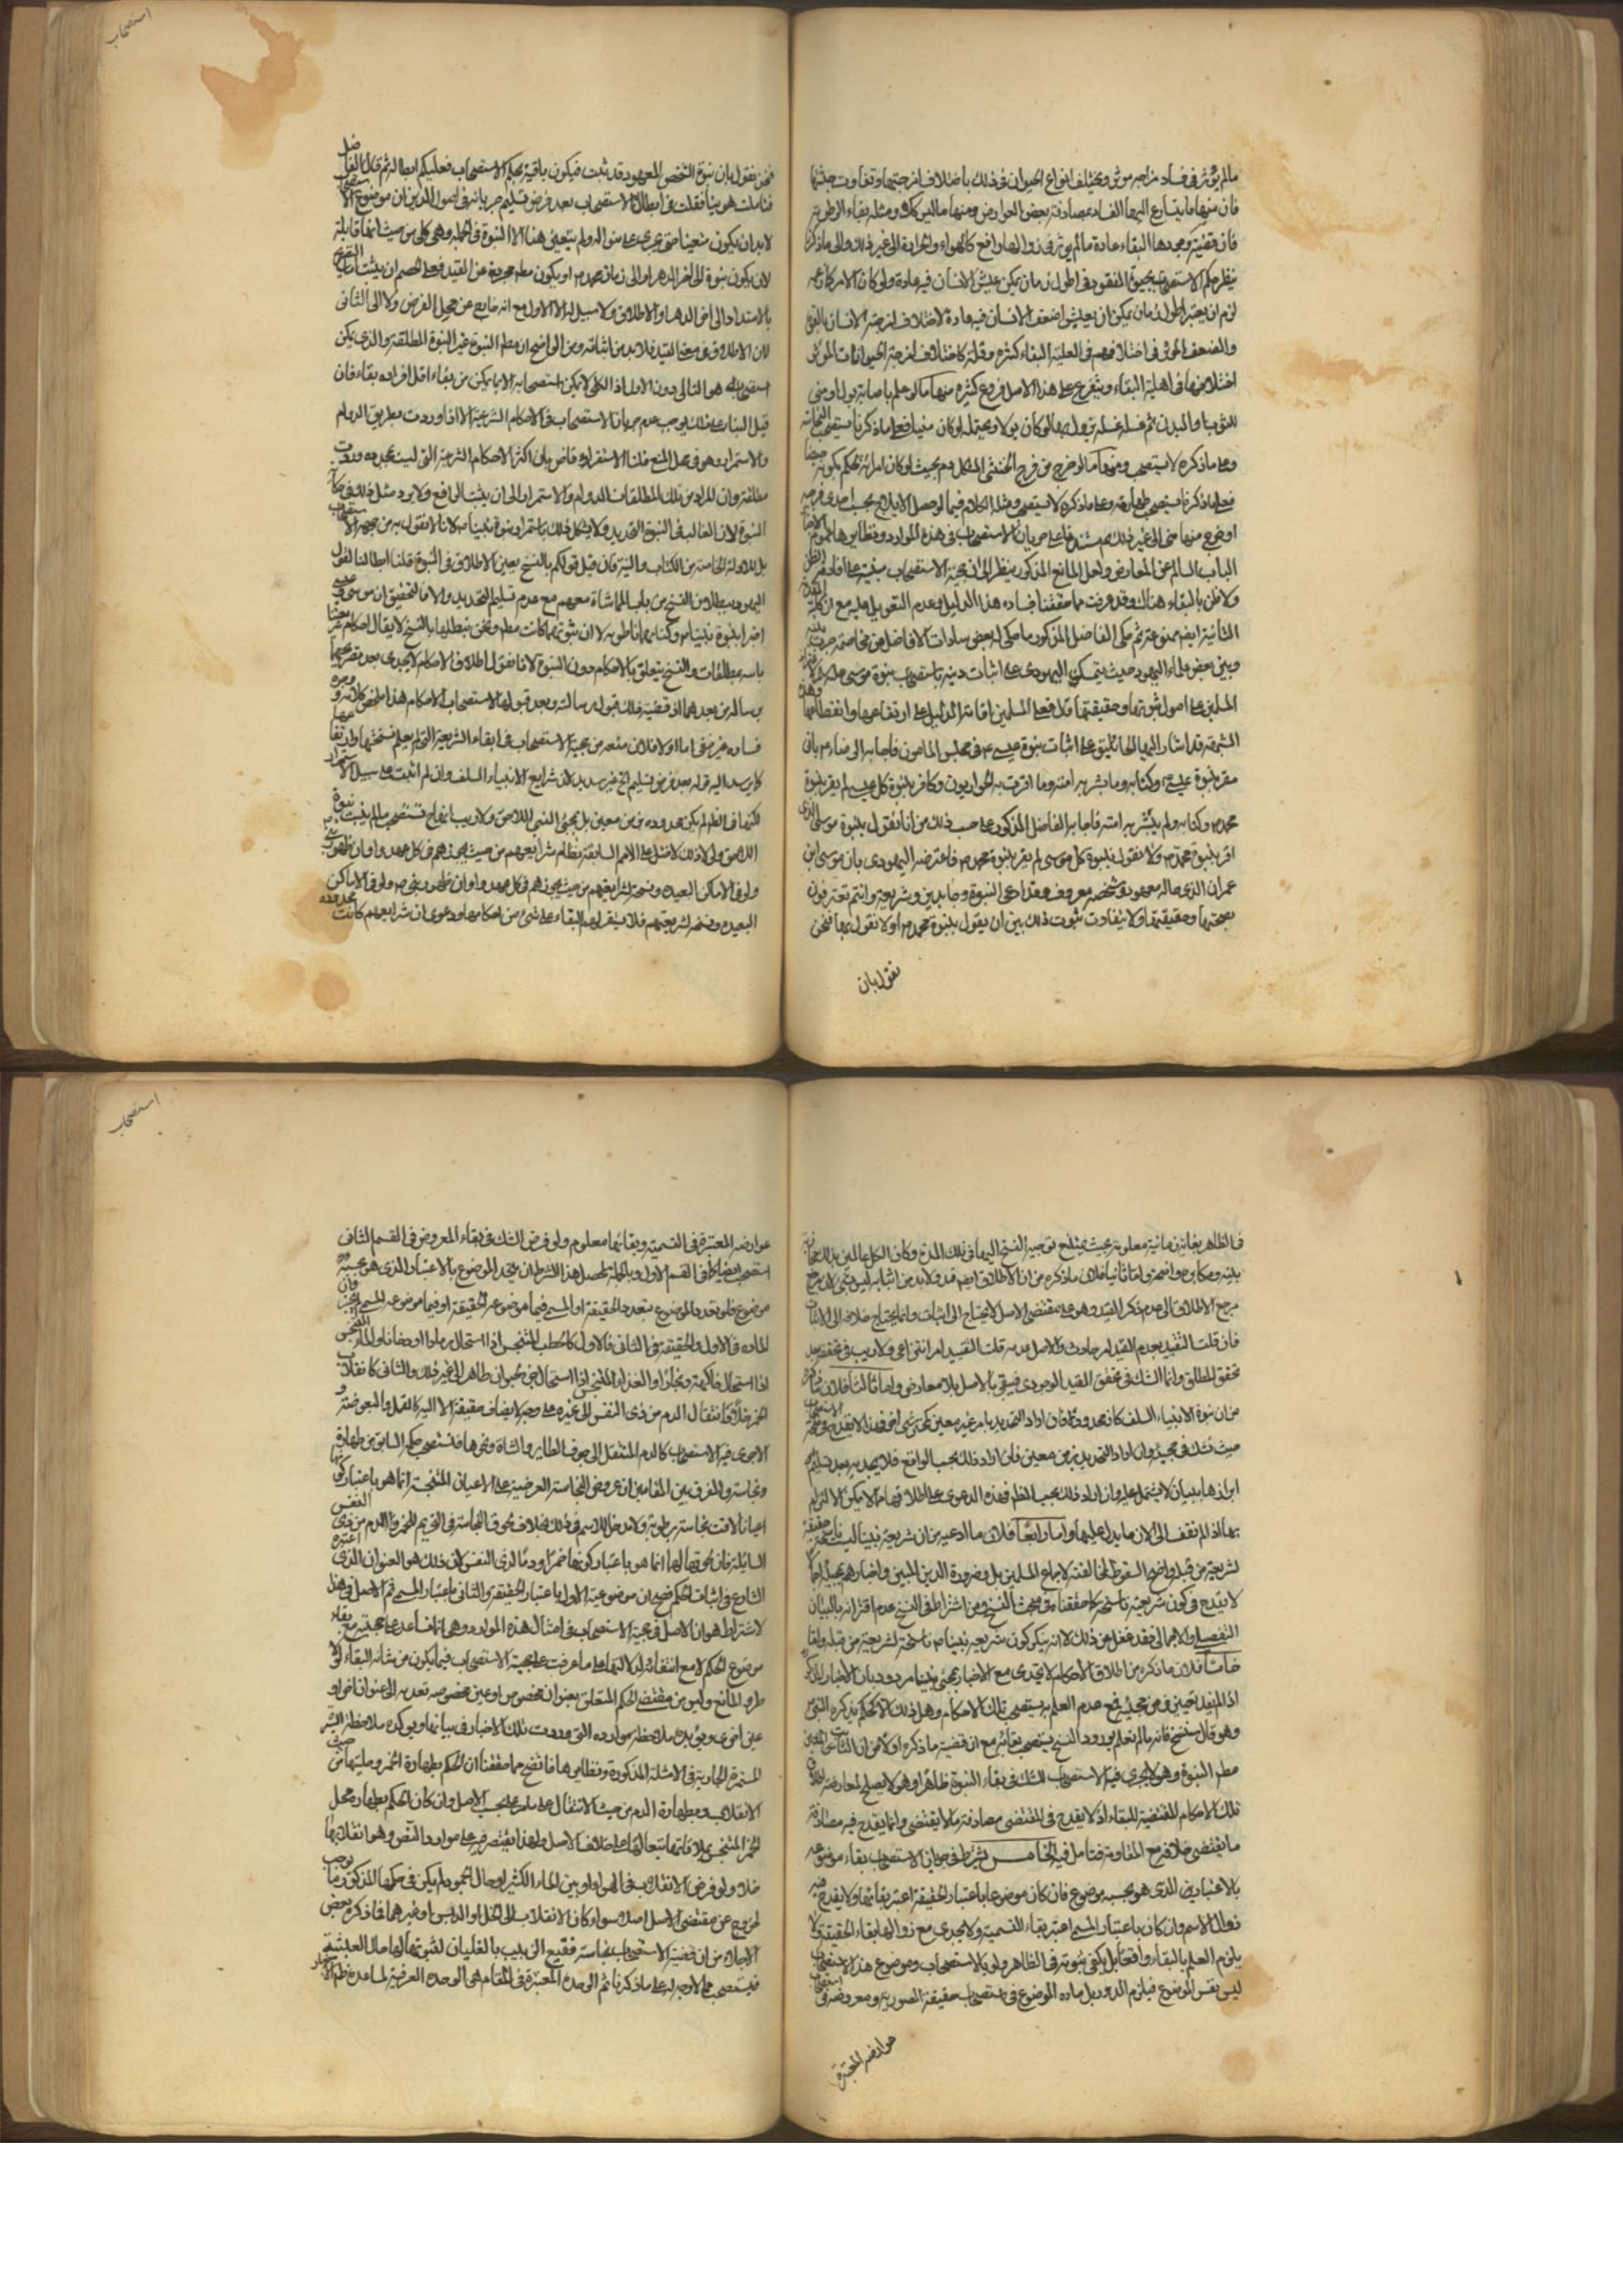 استصحاب
ما لم يؤثر في فساد مزاجه مؤثر ويختلف انواع الحيوان في ذلك باختلاف امزجتها وتفاوت
فان منها ما يتسارع اليها الفساد بمصادفة بعض العوارض ومنها ما ليس كذلك ومثله بقاء الرطوبة
فان قضية وجودها البقاء عادة ما لم يؤثر في زوالها رافع كالهواء والحرارة الى غير ذلك وعلى ما ذكر
نظر حكم الاستصحاب بحيوة المفقود في اطول زمان يمكن عيش الانسان فيه عادة ولو كان الامر كما زعمه
لزم ان يعتبر اطول زمان يمكن ان يعيش اضعف الانسان فيه عادة لاختلاف امزجة الانسان بالقوة
والضعف المؤثر في اختلافهم في اهلية البقاء كثرة وقلة كاختلاف امزجة الحيوانات المؤثر
اختلافها في اهلية البقاء ويتفرع على هذا الاصل فروع كثيرة منها ما لو علم باصابة بول او مني
للثوب او البدن ثم غسله غسلة يزول بها لو كان بولا ويحتمله لو كان منيا فعلى ما ذكرنا يستصحب النجاسة
وعلى ما ذكره لا يستصحب ومنها ما لو خرج من فرج الخنثى المشكل دم بحيث لو كان امراة لحكم بكونه حيضا
فعلى ما ذكرنا يستصحب طهارته وعلى ما ذكره لا يستصحب ومثله الكلام فيما لو حصل الايلاج بحسب احدى فرجيه
او خرج منها مني الى غير ذلك ثم مستندنا على جريان الاستصحاب في هذه الموارد ونظايرها عموم الاخبار
الباب السالم عن المعارض ولعل المانع المذكور ينظر الى ان حجية الاستصحاب مبنية على افادته الظن
ولا ظن بالبقاء هناك وقد عرفت مما حققنا فساد هذا الدليل وعدم التعويل عليه مع ان كلية المقدمة
الثانية ايضا ممنوعة ثم حكى الفاضل المذكور ما حكى له بعض سادات الافاضل من مخاصمة جرت بينه
وبين بعض علماء اليهود حيث تمسك اليهودي على اثبات دينه باستصحاب نبوة موسى
المسلمين على اصول ثبوتها وحقيقتها قال فعلى المسلمين اقامة الدليل على ارتفاعها وانقطاعها وهذه
الشبهة قد اشار اليها الجاثليق على اثبات نبوة عيسى في مجلس المامون فاجابه الرضا ع بانه
مقر بنبوة عيسى ع وكتابه وما بشر به امته وما اقرت به الحواريون وكافر بنبوة كل عيسى لم يقر بنبوة
محمد ص وكتابه ولم يبشر به امته فاجابه الفاضل المذكور على حسب ذلك من انا نقول بنبوة موسى الذي
اقر بنبوة محمد ص ولا نقول بنبوة كل موسى لم يقر بنبوة محمد ص فاعترضه اليهودي بان موسى بن
عمران الذي حاله معهود وشخصه معروف وقد ادعى النبوة وجاء بدين وشريعة وانتم تعترفون
بصحتها وحقيقتها ولا يتفاوت ثبوت ذلك بين ان يقول بنبوة محمد ص او لا نقول بها فنحن
نقول بان
فنحن نقول بان نبوة الشخص المعهود قد ثبت فيكون باقية بحكم الاستصحاب فعليكم ابطاله ثم قال الفاضل
فتاملت هوينا فقلت في ابطال الاستصحاب بعد فرض تسليم جريانه في اصول الدين ان موضوع الاستصحاب
لا بد ان يكون متعينا حتى يجرى على منواله ولم يتعين هنا الا النبوة في الجملة وهي كلي من حيث انها قابلة
لان يكون نبوة الى اخر الدهر او الى زمان محمد ص او يكون مطلقة مجردة عن القيد فعلى الخصم ان يثبت
بالامتداد الى اخر الدهر او الاطلاق ولا سبيل له الى الاول مع انه خارج عن محل الفرض ولا الى الثاني
لان الاطلاق في معنى القيد فلا بد من اثباته ومن الواضح ان مطلق النبوة غير النبوة المطلقة والذي يمكن
استصحابه هو الثاني دون الاول اذ الكلي لا يمكن استصحابه الا بما يمكن من بقاء اقل افراده بقاء فان
قيل البناء على ذلك يوجب عدم جريان الاستصحاب في الاحكام الشرعية الا اذا وردت بطريق الدوام
والاستمرار وهو في محل المنع قلنا الاستقراء قاض بان اكثر الاحكام الشرعية التي ليست محدودة وردت
مطلقة وان المراد من تلك المطلقات الدوام والاستمرار الى ان يثبت الرافع ولا يرد مثل ذلك في حكاية
النبوة لان الغالب في النبوة التحديد ولا يشكل ذلك باستمرار نبوة نبينا ص لانا لا نقول به من جهة الاستصحاب
بل للادلة الخاصة من الكتاب والسنة فان قيل قولكم بالنسخ يعين الاطلاق في النبوة قلنا ابطالنا لقول
اليهود ببطلان النسخ من باب المماشاة معهم مع عدم تسليم التحديد والا فالتحقيق ان موسى وعيسى
اخبرا بنبوة نبينا ص وكتابهما ناطق به لا ان نبوتهما كانت مطلقة ونحن نبطلها بالنسخ لا يقال احكام شرعنا
باسرها مطلقات والنسخ يتعلق بالاحكام دون النبوة لانا نقول اطلاق الاحكام لا يجدى بعد تصريحهما
برسالة من بعدهما اذ قضية ذلك قبول رسالته وبعد قبولها لا استصحاب لاحكام هذا ملخص كلامه ووجوه
فساده غير خفى اما اولا فلان منعه من حجية الاستصحاب في ابقاء الشريعة التي لم يعلم نسخها وارتفاعها
كما يرشد اليه قوله بعد فرض تسليم الخ غير سديد لان شرايع الانبياء السلف وان لم يثبت على سبيل الاستمرار
لكنها في الظاهر لم يكن محدودة بزمن معين بل بمجئ النبي اللاحق ولا ريب انها تستصحب ما لم يثبت نبوة
اللاحق ولو لا ذلك لاختل على الامم السابقة نظام شرايعهم من حيث تجويزهم في كل عهد واوان ظهور نبي
ولو في الاماكن البعيده
البعيده ونسخه لشريعتهم فلا يستقر لهم البقاء على شئ من احكامها ودعوى ان شرايعهم كانت محدودة
استصحاب
في الظاهر بغاية زمانية معلومة بحيث يمتنع توجيه النسخ اليها في تلك المدة وكان الكل عالمين بذلك
بينة ومكابرة واضحة واما ثانيا فلان ما ذكره من ان الاطلاق ايضا قيد ولا بد من اثباته ليس بشئ لان مرجع
مرجع الاطلاق الى عدم ذكر القيد وهو على مقتضى الاصل لا يحتاج الى اثبات وانما يحتاج خلافه الى الاثبات
فان قلت التقييد بعدم القيد امر حادث والاصل عدمه قلت التقييد امر انتزاعي ولا ريب في تحققه بعد
تحقق المطلق وانما الشك في تحقق القيد الوجودي فينفى بالاصل بلا معارض واما ثالثا فلان ما ذكره
من ان نبوة الانبياء السلف كان محدودة فان اراد التحديد بامر غير معين كمجئ نبي اخر فهذا لا يقدح
حيث نشك في مجيئه وان اراد التحديد بزمن معين فان اراد ذلك بحسب الواقع فلا يجديه بعد تسليم
ابرازها ببيان لا يشتمل عليه وان اراد ذلك بحسب الظاهر فهذه الدعوى على اطلاقها مما لا يمكن الالتزام
بها اذ لم نقف الى الان ما يدل عليها واما رابعا فلان ما ادعيه من ان شريعة نبينا ليست ناسخة
لشريعة من قبله واضح السقوط لمخالفته لاجماع المسلمين بل وضرورة الدين المبين واخبارهم بمجيئه
لا يقدح في كون شريعته ناسخة كما حققنا في مبحث النسخ ومن اشترط في النسخ عدم اقترانه بالبيان
التفصيلي والاجمالي فقد غفل عن ذلك لانه ينكر كون شريعة نبينا ص ناسخة لشريعة من قبله واما
خامسا فلان ما ذكره من اطلاق الاحكام لا يجدى مع الاخبار بمجئ نبينا ص مردود بان الاخبار المذكور
اذ المفيد تعيين زمن مجيئه فمع عدم العلم به يستصحب تلك الاحكام وهل ذلك الا كحكم يذكره النبي ص
وهو قال سننسخ فانه ما لم نعلم بورود النسخ يستصحب بقائه مع ان قضية ما ذكره اولا من ان الثابت
مطلق النبوة وهو لا يجرى فيه الاستصحاب الشك في بقاء النبوة ظاهرا وهو لا يصلح لمعارضة اطلاق
تلك الاحكام المقتضية للبقاء اذ لا يقدح في المقتضى مصادفة ما لا يقتضى وانما يقدح فيه مصادفة
ما يقتضى خلافه مع المقاومة فتامل فيه الخامس يشترط في جريان الاستصحاب بقاء موضوعه
بالاعتبار الذي هو بحسبه موضوع فان كان موضوعا باعتبار الحقيقة اعتبر بقائها ولا يقدح فيه
زوال الاسم وان كان باعتبار المسمى اعتبر بقاء التسمية ولا يجدى مع زوالها بقاء الحقيقة ولا
يلزم العلم بالبقاء واقعا بل يكفى ثبوته في الظاهر ولو بالاستصحاب وموضوع هذا الاستصحاب
ليس نفس الموضوع فيلزم الدور بل مادة الموضوع في استصحاب حقيقة الصورية ومعروضه في استصحاب
عوارضه المعتبرة
عوارضه المعتبرة في التسمية وبقائها معلوم ولو فرض الشك في بقاء المعروض في القسم الثاني
استصحب ايضا كما في القسم الاول وبالجملة لمحصل هذا الشرط ان يتحد الموضوع بالاعتبار الذي هو بحسبه
موضوع فلو تعدد الموضوع بتعدد الحقيقة او المسمى فيما موضوعه الحقيقة او فيما موضوعه المسمى لم يجز وان
المادة في الاول والحقيقة في الثاني فالاول كالحطب المتنجس اذا استحال رمادا او دخانا والماء المتنجس
اذا استحال فاكهة وبخارا او الغذاء المتنجس اذا استحال جزء حيوان طاهر الى غير ذلك والثاني كانقلاب
الخمر خلا وكانتقال الدم من ذى النفس الى غيره على وجه لا يضاف حقيقة الا اليه كالقمل والبعوضة و
الا جرى فيه الاستصحاب كالدم المنتقل الى جوف الطاير والشاة ونحوها فنستصحب حكمه السابق من طهارة
ونجاسة والفرق بين المقامين ان عروض النجاسة العرضية على الاعيان المتنجسة انما هو باعتبار كونها
اعيانا لاقت نجاسة برطوبة ولا مدخل للاسم في ذلك بخلاف لحوق النجاسة والتحريم للخمر والدم من ذى النفس
السائلة فان لحوقها لها انما هو باعتبار كونها خمرا ودما لذى النفس لان ذلك هو العنوان الذي اعتبره
الشارع في اثبات الحكم فصح ان موضوعية الاول باعتبار الحقيقة والثاني باعتبار المسمى ثم الاصل في هذا
الاشتراط هو ان الاصل في حجية الاستصحاب في امثال هذه الموارد وهي انما تساعد على حجيته مع بقاء
موضوع الحكم لا مع انتفائه لدلالتها على ما عرفت على حجية الاستصحاب فيما يكون من شانه البقاء لولا
طرو المانع وليس من مقتضى الحكم المتعلق بعنوان مخصوص او عين مخصوصة تعديه الى عنوان اخر او
عين اخرى ويؤيده ملاحظة موارده التي وردت تلك الاخبار في بيانها ويؤكده ملاحظة السيرة
المستمرة الجارية في الامثلة المذكورة ونظايرها فاتضح مما حققنا ان الحكم بطهارة الخمر وحليتها من حيث
الانقلاب وبطهارة الدم من حيث الانتقال على ما مر على حسب الاصل وان كان الحكم بطهارة محل
الخمر المتنجس بملاقاتها تبعا لها على خلاف الاصل ولهذا يقتصر فيه على موارد النص وهو انقلابها
خلا ولو فرض الانقلاب في الهواء او بين الماء الكثير او حال الجمود لم يكن في حكمها المذكور ما يوجب
الخروج عن مقتضى الاصل اصلا سواء كان الانقلاب الى الخل او الدبس او غيرهما فما ذكره بعض
الاجلاء من ان قضية الاستصحاب نجاسة فقيع الزبيب بالغليان لثبوتها لها حال العنبية
فيستصحب مما لا وجه له على ما ذكرنا ثم الوحدة المعتبرة في المقام هي الوحدة العرفية لمساعدة ظاهر الاخبار